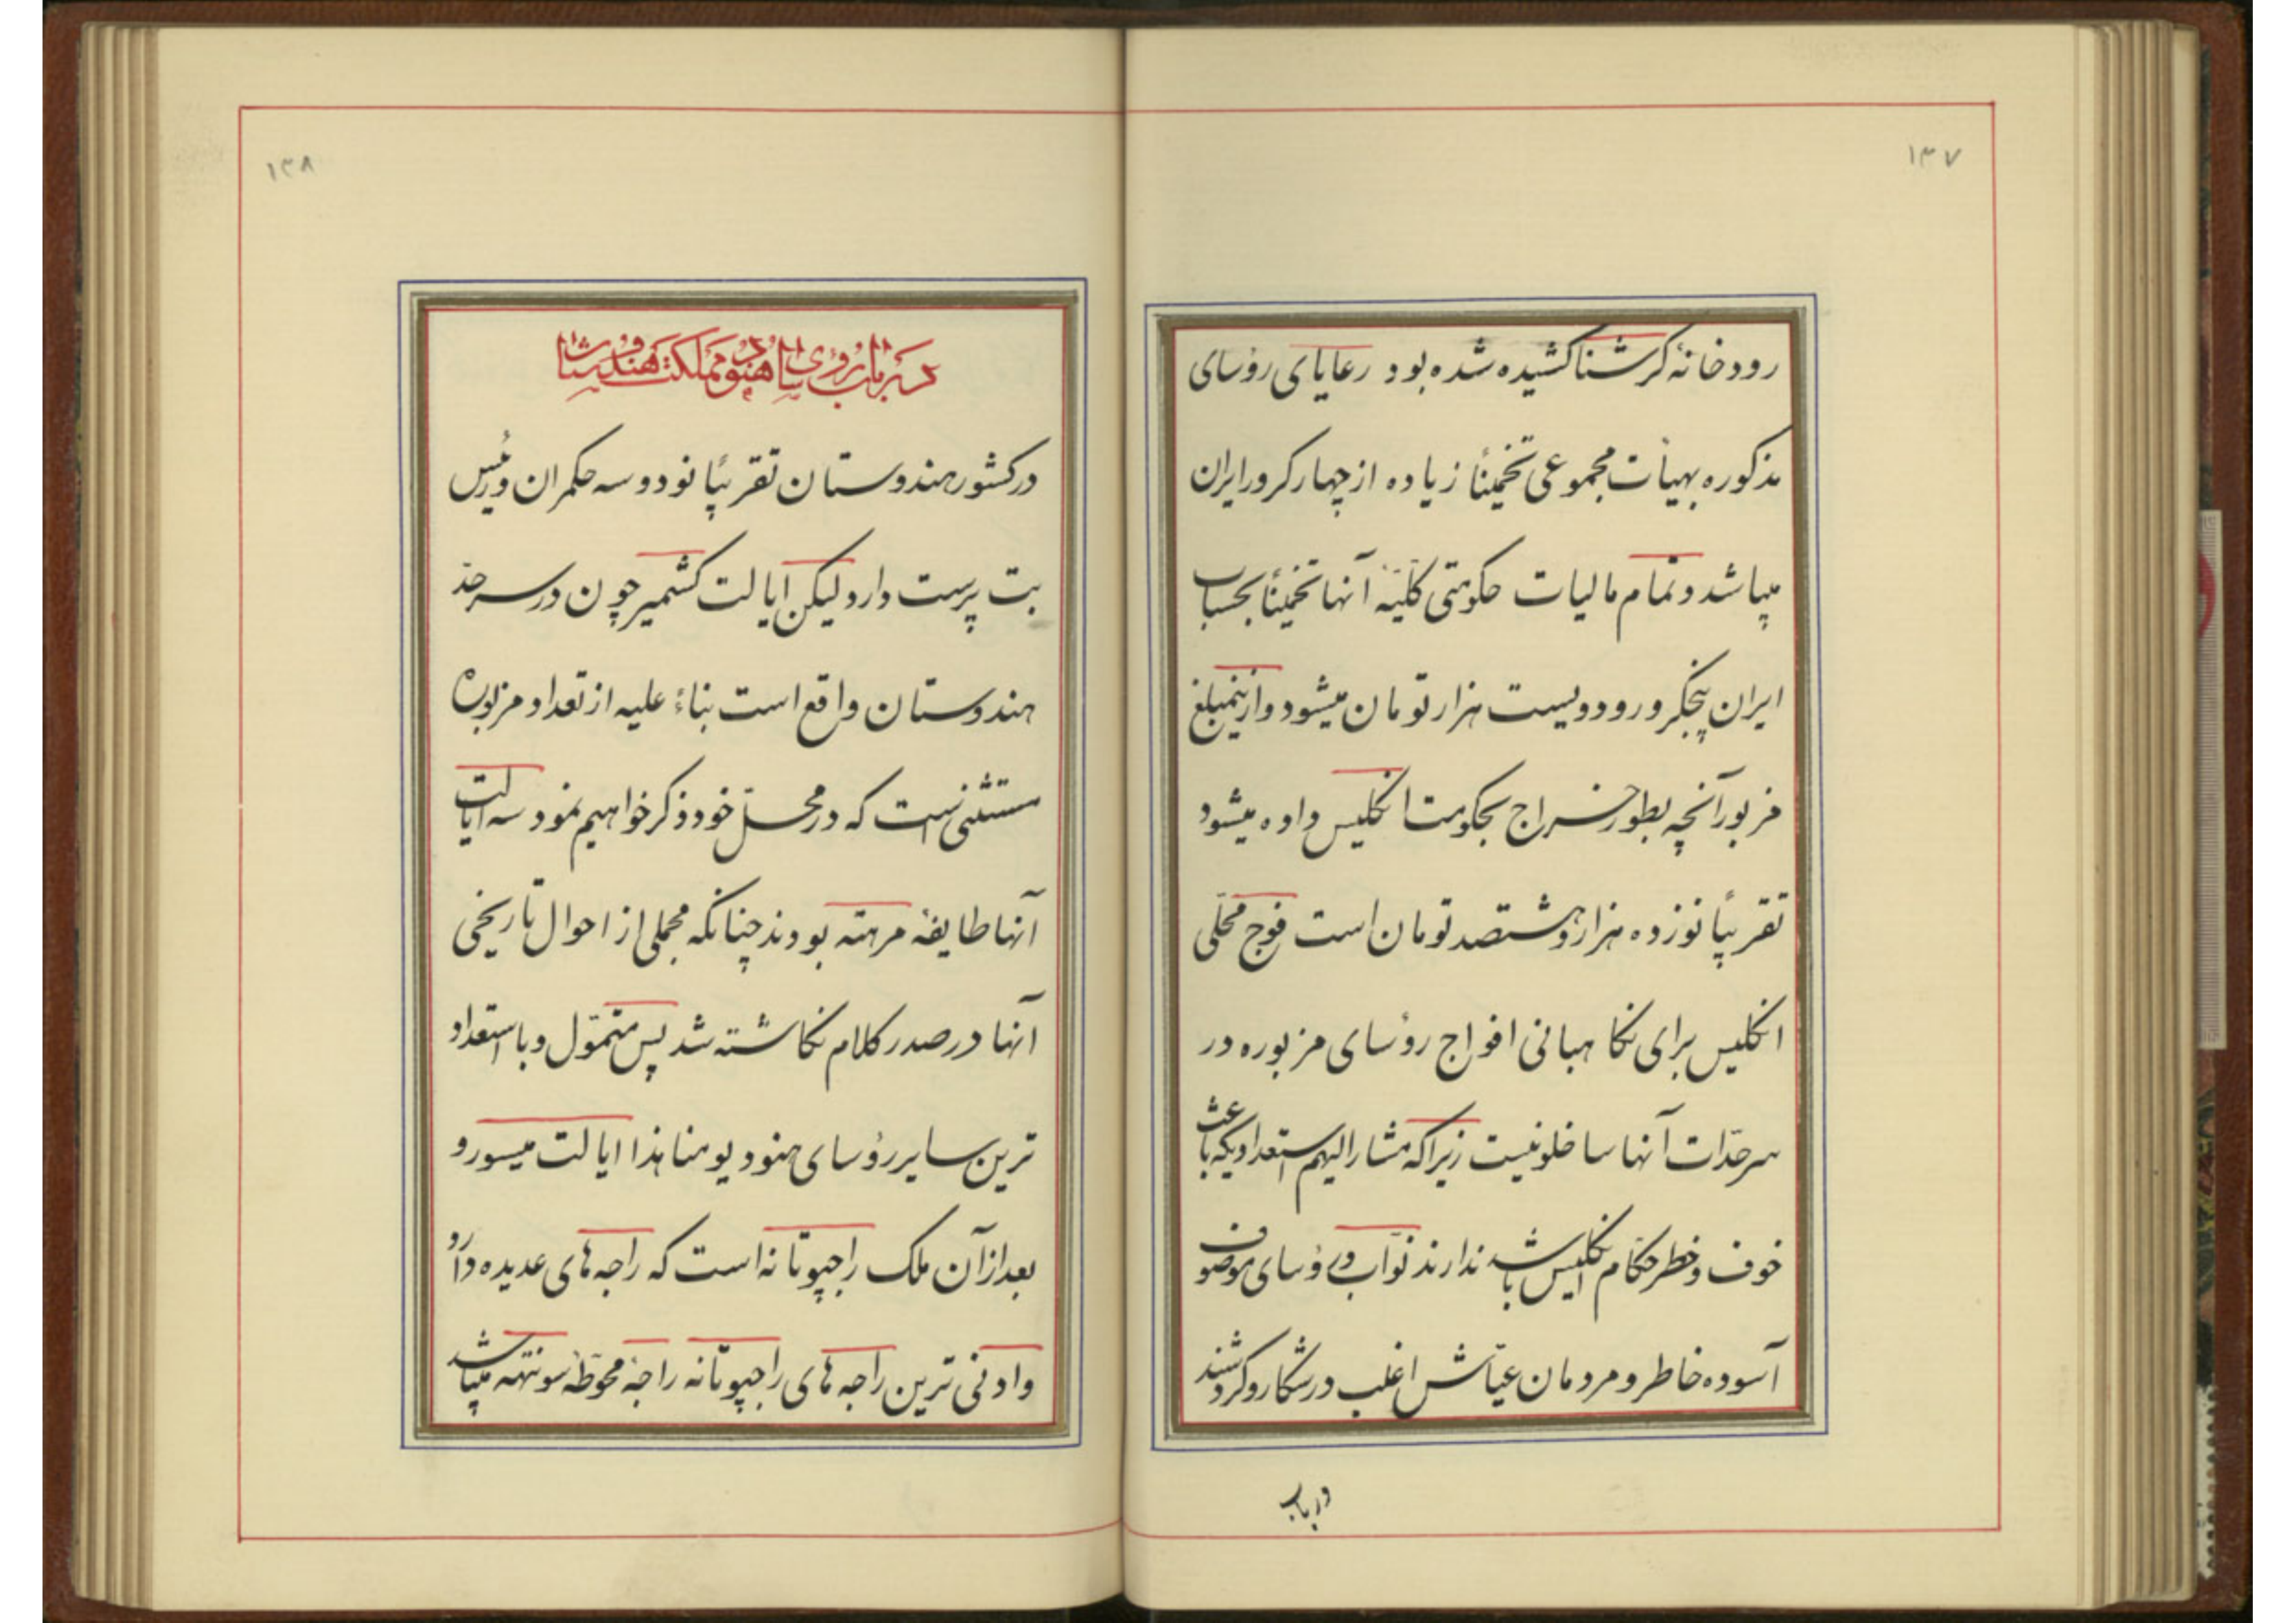 ۱۳۷
رودخانهٔ کرشنا کشیده شده بود رعایای رؤسای
مذکوره بهیأت مجموعی تخمیناً زیاده از چهار کرور ایران
میباشد و تمام مالیات حکومتی کلیّهٔ آنها تخمیناً بحساب
ایران پنجکرور و دویست هزار تومان میشود و از ینمبلغ
مزبور آنچه بطور خراج بحکومت انگلیس داده میشود
تقریباً نوزده هزار و هشتصد تومان است فوج محلّی
انگلیس برای نگاهبانی افواج رؤسای مزبوره در
سرحدّات آنها ساخلو نیست زیرا که مشارالیهم استعدادیکه باعث
خوف و خطر حکّام انگلیس باشد ندارند نوّاب و رؤسای موصوف
آسوده خاطر و مردمان عیّاش اغلب در شکار و گردشند
در باب
۱۳۸
در باب رؤسای هنود مملکت هندوستان
در کشور هندوستان تقریباً نود و سه حکمران و رئیس
بت پرست دارد لیکن ایالت کشمیر چون در سرحدّ
هندوستان واقع است بناءً علیه از تعداد مزبوره
مستثنی است که در محلّ خود ذکر خواهیم نمود سه ایالت
آنها طایفهٔ مرهته بودند چنانکه مجملی از احوال تاریخی
آنها در صدر کلام نگاشته شد پس متموّل و با استعداد
ترین سایر رؤسای هنود یومنا هذا ایالت میسور و
بعد از آن ملک راجپوتانه است که راجه های عدیده دارد
و ادنی ترین راجه های راجپوتانه راجهٔ محوّطهٔ سونتهه میباشد